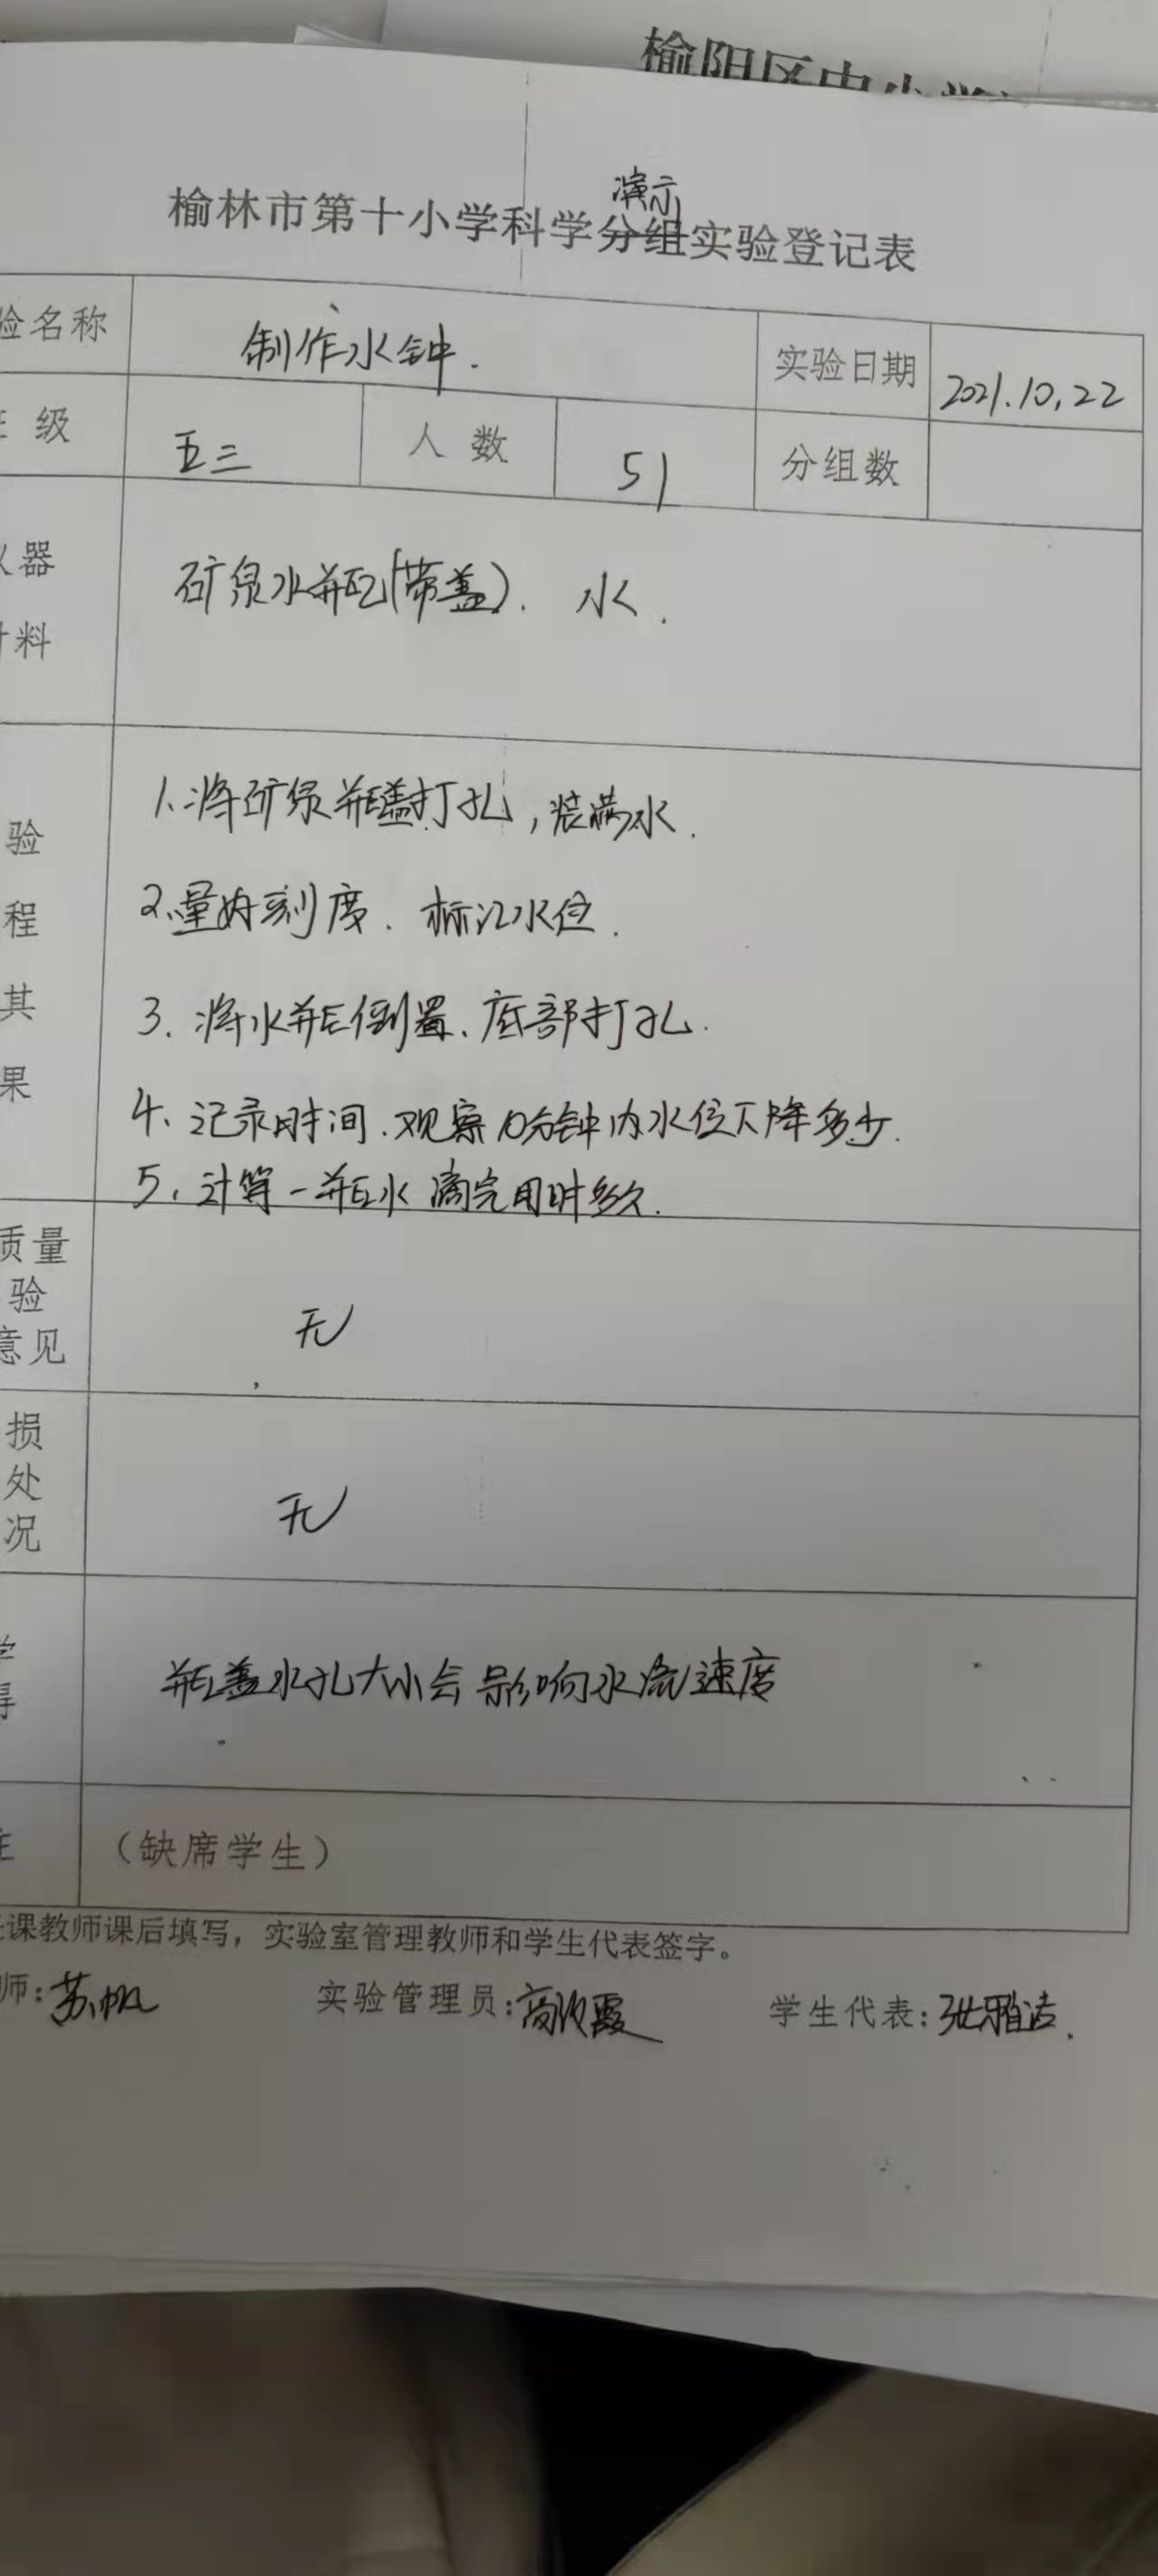 榆阳区中小学
演示
榆林市第十小学科学分组实验登记表
验名称
制作水钟.
实验日期
2021.10.22
级
五三
人数
51
分组数
仪器
材料
矿泉水瓶(带盖). 水.
验
程
其
果
1.将矿泉瓶盖打孔,装满水.
2.量好刻度. 标记水位.
3.将水瓶倒置、底部打孔.
4.记录时间.观察10分钟内水位下降多少.
5.计算一瓶水滴完用时多久.
质量
验
意见
无
损
处
况
无
学
得
瓶盖水孔大小会影响水流速度
注
(缺席学生)
课教师课后填写,实验室管理教师和学生代表签字。
师:苏帆
实验管理员:高欣霞
学生代表:张雅洁.